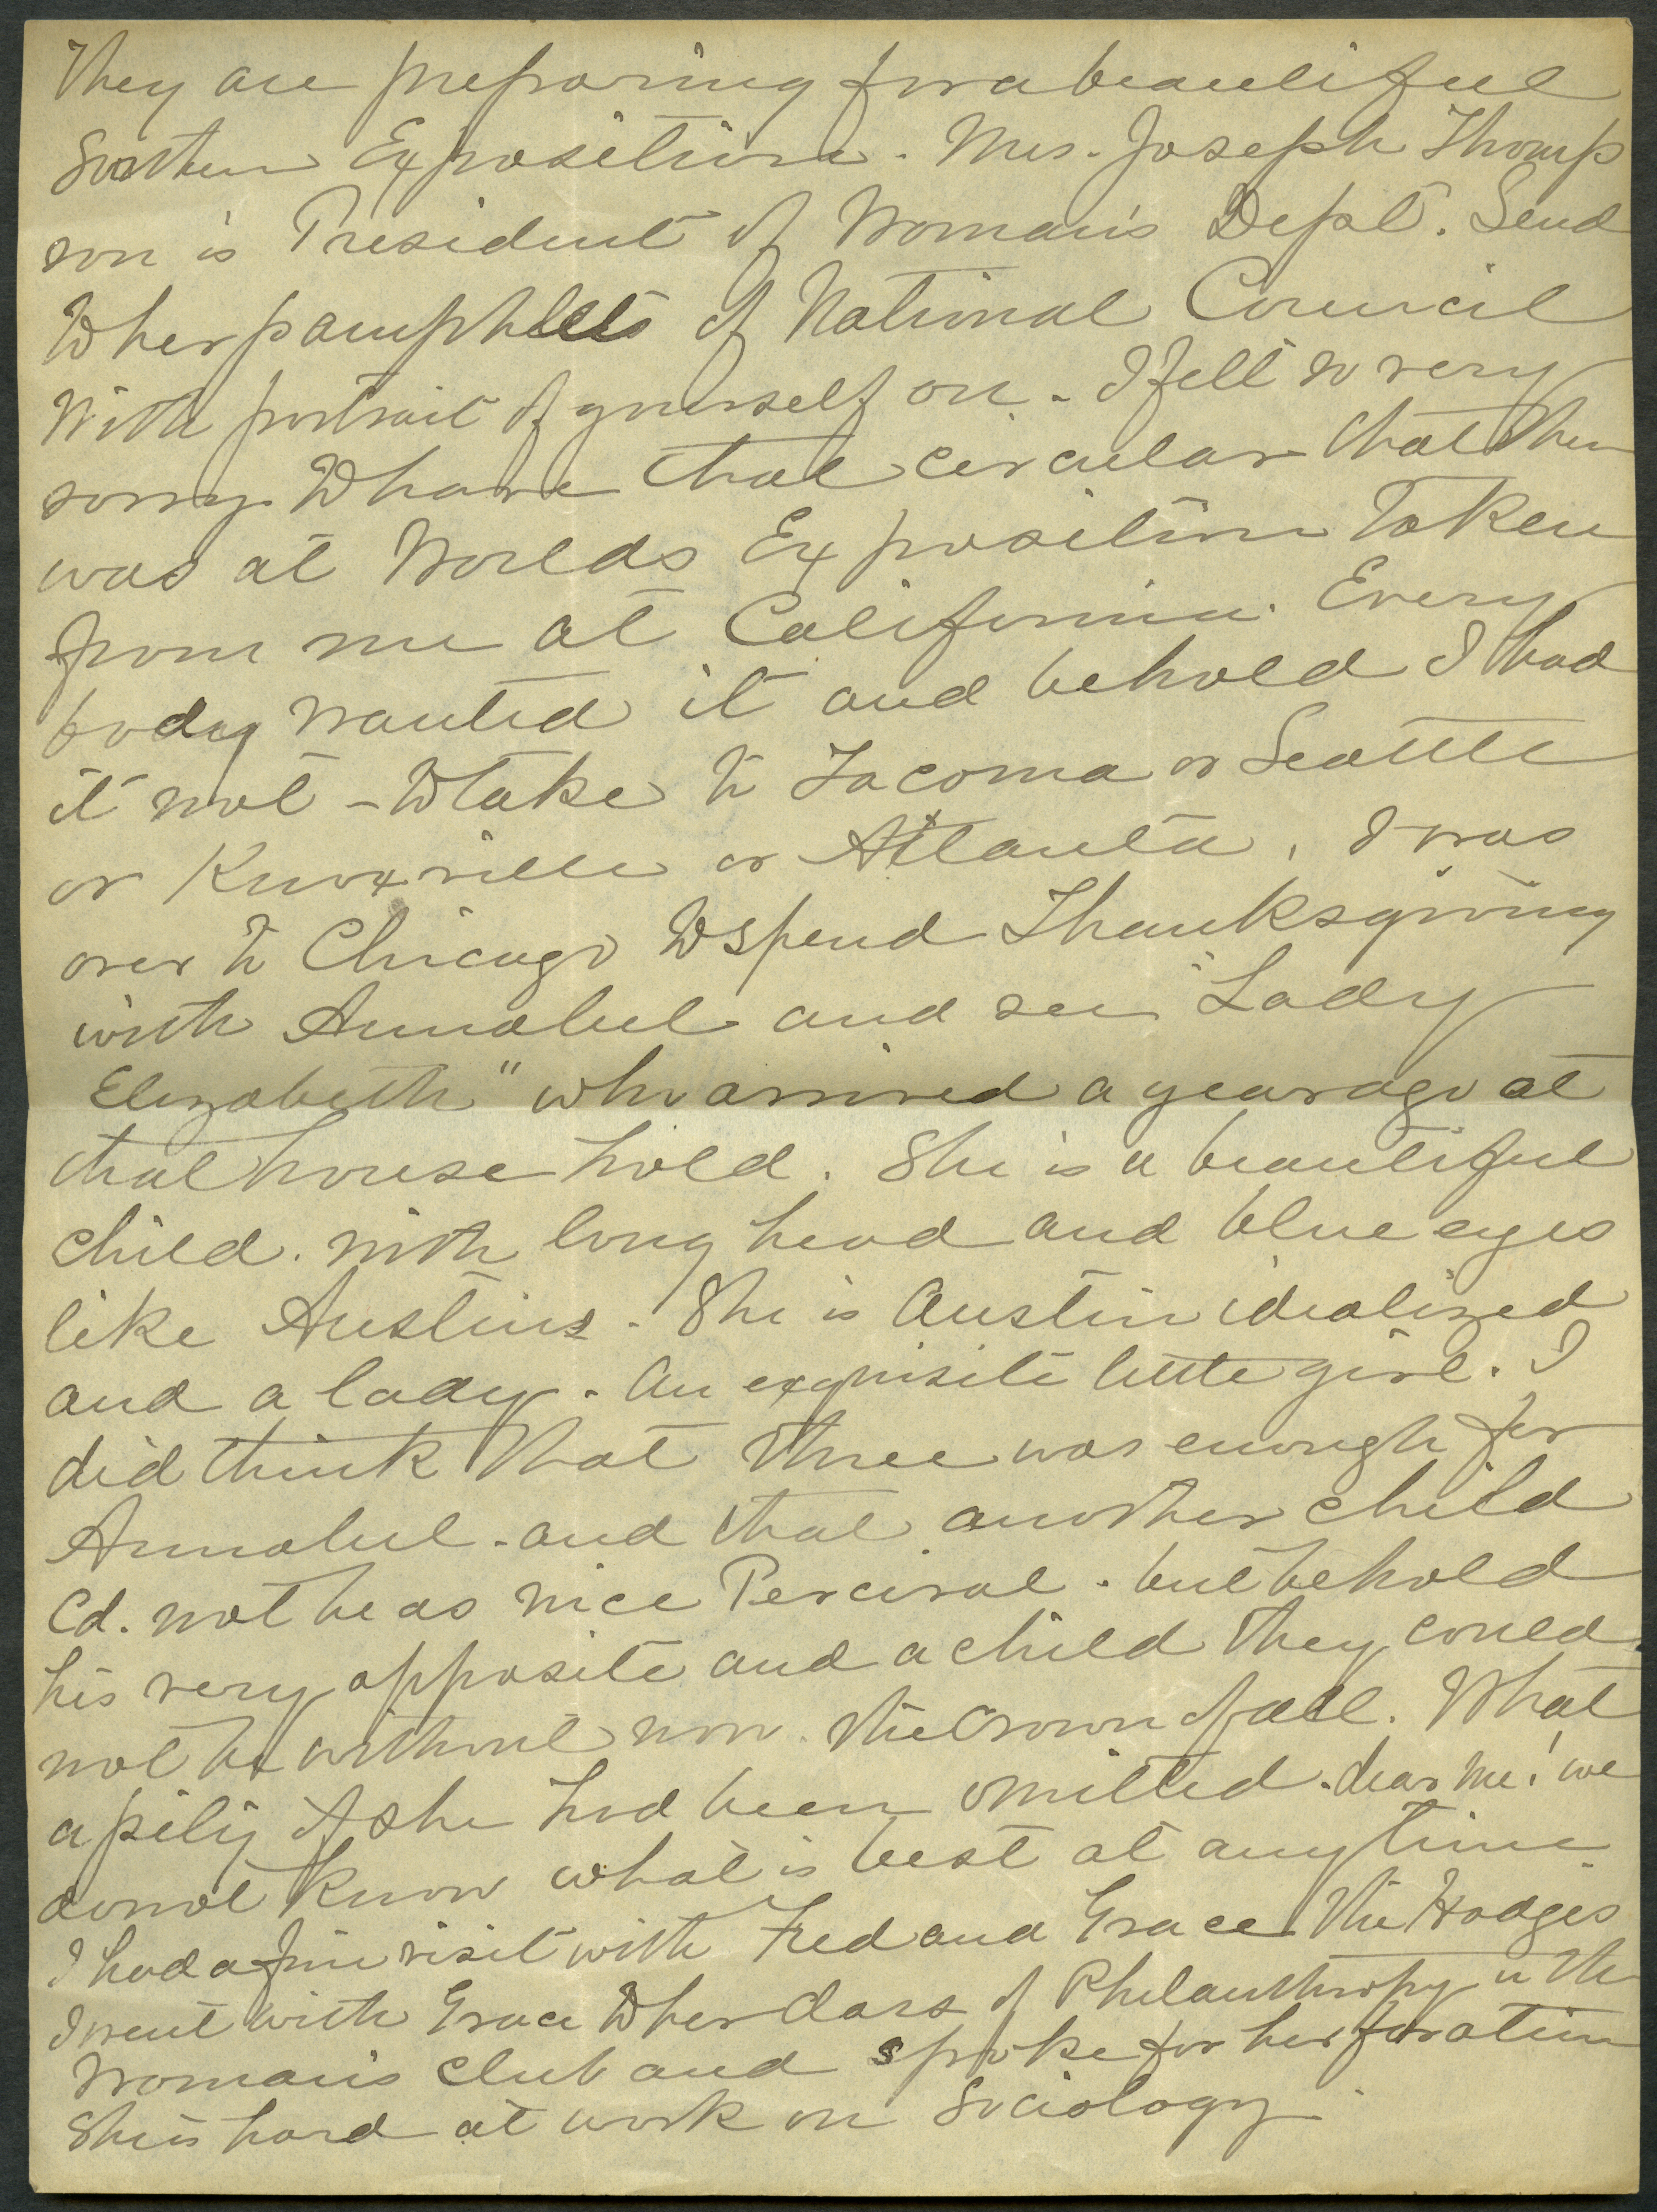 They are preparing for a beautiful
Southern Exposition. Mrs. Joseph Thomp
son is President of Woman's Dept. Send
to her pamphlets of National Council
With portrait of yourself on. I felt so very
sorry to have that circular that then
was at Worlds Exposition taken
from me at California. Every
body wanted it and behold I had
it not - to take to Tacoma or Seattle
or Knoxville or Atlanta, I was
over to Chicago to spend Thanksgiving
with Annabel and see "Lady
Elizabeth" who arrived a year ago at
that house hold. She is a beautiful
child. with long head and blue eyes
like Austins. She is Austin idealized
and a lady. An exquisite little girl. I
did think that three was enough for
Annabel - and that another child
Cd. not be as nice Percival. but behold
his very opposite and a child they could
not be without now. the Crown of all. What
a pity if she had been omitted. dear me! we
do not know what is best at any time.
I had a fine visit with Fred and Grace the Hodges
I went with Grace to her class of Philanthropy in the
Woman's Club and spoke for her for a time
She is hard at work on Sociology.